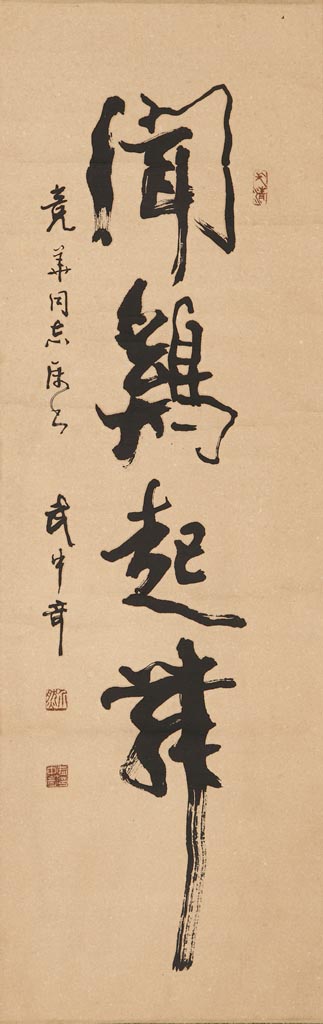 聞鷄起舞
竞華同志屬 武中奇